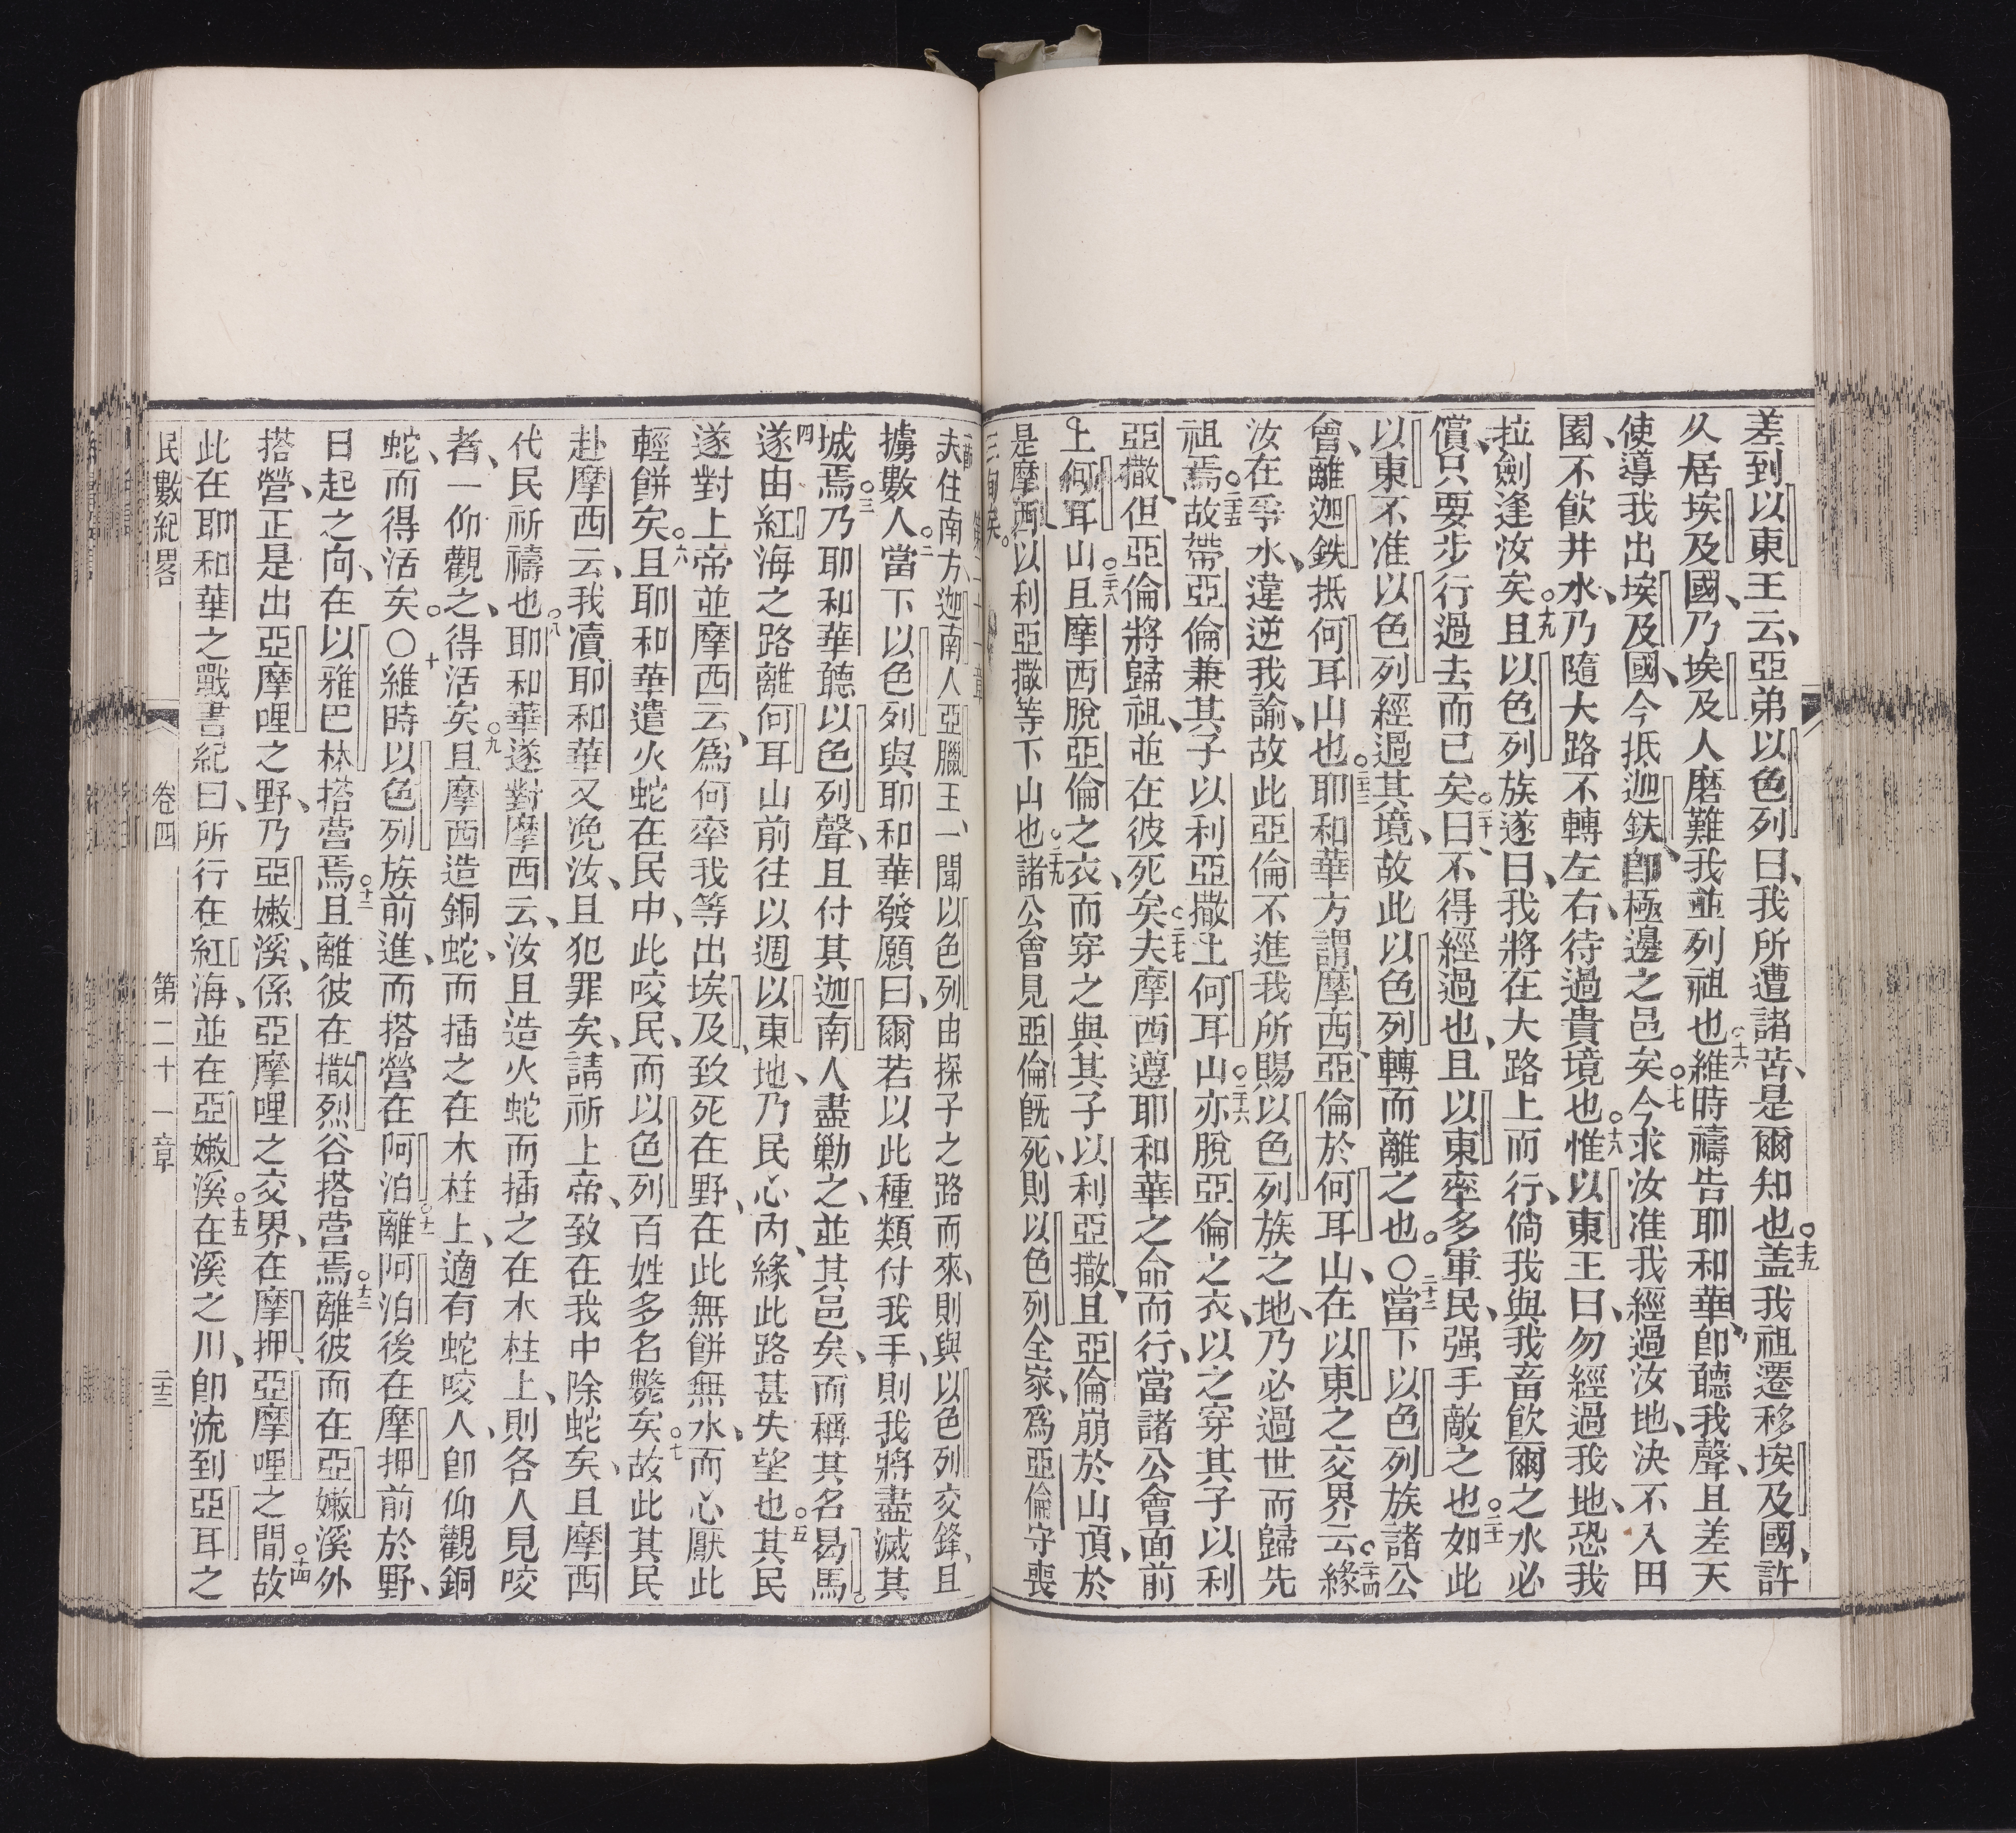 差到以東王云、亞弟以色列曰、我所遭諸苦、是爾知也○十五盖我祖遷移埃及國、許
久居埃及國、乃埃及人磨難我並列祖也○十六維時禱告耶和華、卽聽我聲、且差天
使導我出埃及國、今抵迦鉄、卽極邊之邑矣○十七今求汝准我經過汝地、決不入田
園、不飮井水、乃隨大路不轉左右、待過貴境也○十八惟以東王曰、勿經過我地、恐我
拉劍逢汝矣○十九且以色列族遂曰、我將在大路上而行、倘我與我畜飮爾之水必
償、只要步行過去而已矣○二十曰、不得經過也、且以東率多軍民、强手敵之也○二十一如此
以東不准以色列經過其境、故此以色列轉而離之也。○二十二當下以色列族諸公
會、離迦鉄抵何耳山也○二十三耶和華方謂摩西、亞倫於何耳山、在以東之交界云○二十四緣
汝在爭水、違逆我諭、故此亞倫不進我所賜以色列族之地、乃必過世而歸先
祖焉○二十五故帶亞倫兼其子以利亞撒上何耳山○二十六亦脫亞倫之衣、以之穿其子以利
亞撒、但亞倫將歸祖、並在彼死矣○二十七夫摩西遵耶和華之命而行、當諸公會面前
上何耳山○二十八且摩西脫亞倫之衣、而穿之與其子以利亞撒、且亞倫崩於山頂、於
是摩西以利亞撒等下山也○二十九諸公會見亞倫旣死、則以色列全家、爲亞倫守喪
三旬矣。
第二十一章
夫住南方迦南人亞臘王、一聞以色列由探子之路而來、則與以色列交鋒、且
擄數人○二當下以色列與耶和華發願曰、爾若以此種類付我手、則我將盡滅其
城焉○三乃耶和華聽以色列聲、且付其迦南人盡勦之、並其邑矣、而稱其名曷馬。
四遂由紅海之路離何耳山前往以週以東地、乃民心內、緣此路甚失望也○五其民
遂對上帝並摩西云、爲何率我等出埃及、致死在野、在此無餠無水、而心厭此
輕餠矣○六且耶和華遣火蛇在民中、此咬民、而以色列百姓多名斃矣○七故此其民
赴摩西云、我瀆耶和華又浼汝、且犯罪矣、請祈上帝、致在我中除蛇矣、且摩西
代民祈禱也○八耶和華遂對摩西云、汝且造火蛇而插之在木柱上、則各人見咬
者、一仰觀之、得活矣○九且摩西造銅蛇、而插之在木柱上、適有蛇咬人、卽仰觀銅
蛇、而得活矣。○十維時以色列族前進、而搭營在阿泊○十一離阿泊後在摩押前於野、
日起之向、在以雅巴林搭營焉○十二且離彼在撒烈谷搭營焉○十三離彼而在亞嫩溪外
搭營、正是出亞摩哩之野、乃亞嫩溪、係亞摩哩之交界、在摩押、亞摩哩之間○十四故
此在耶和華之戰書紀曰、所行在紅海、並在亞嫩溪○十五在溪之川、卽流到亞耳之
民數紀畧 卷四 第二十一章 二十三